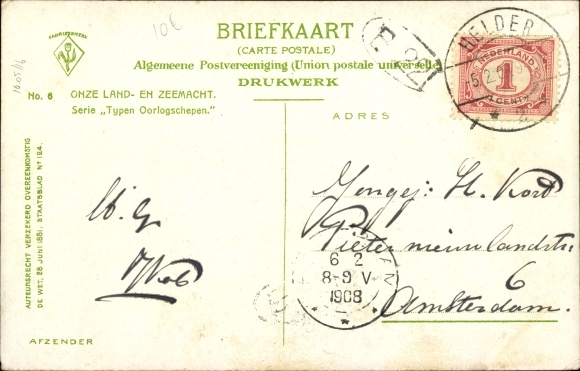 FABRIEKSMERK
10€
BRIEFKAART
(CARTE POSTALE)
Algemeene Postvereeniging (Union postale universelle)
DRUKWERK
HELDER
5.2
NEDERLAND
1
CENT
No. 6
ONZE LAND- EN ZEEMACHT.
Serie „Typen Oorlogschepen."
ADRES
AUTEURSRECHT VERZEKERD OVEREENKOMSTIG
DE WET. 28 JUNI 1881. STAATSBLAD No 124.
H. Kort
Pieter nieuwlandstr
6
Amsterdam.
6 2
8-9 V
1908
AFZENDER